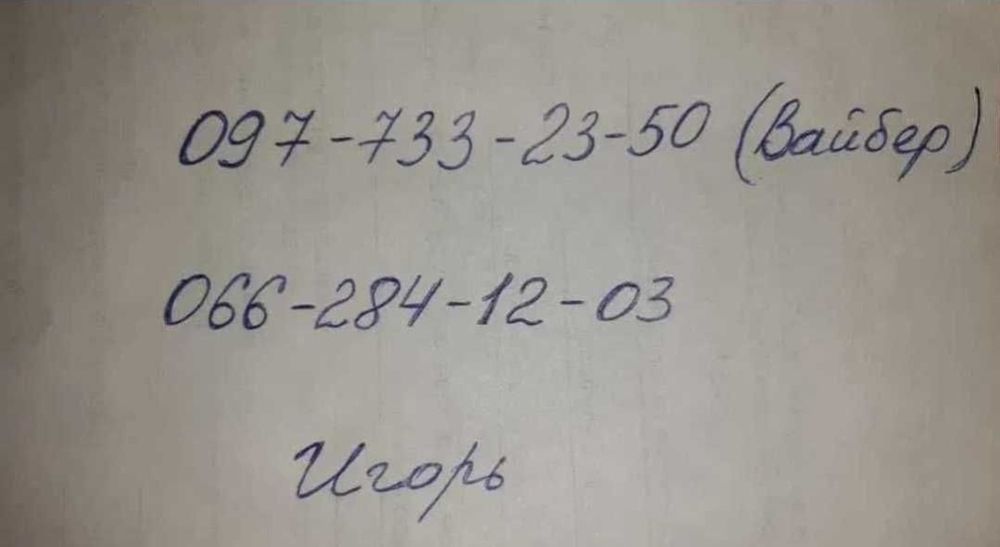 097-733-23-50 (Вайбер)
066-284-12-03
Игорь